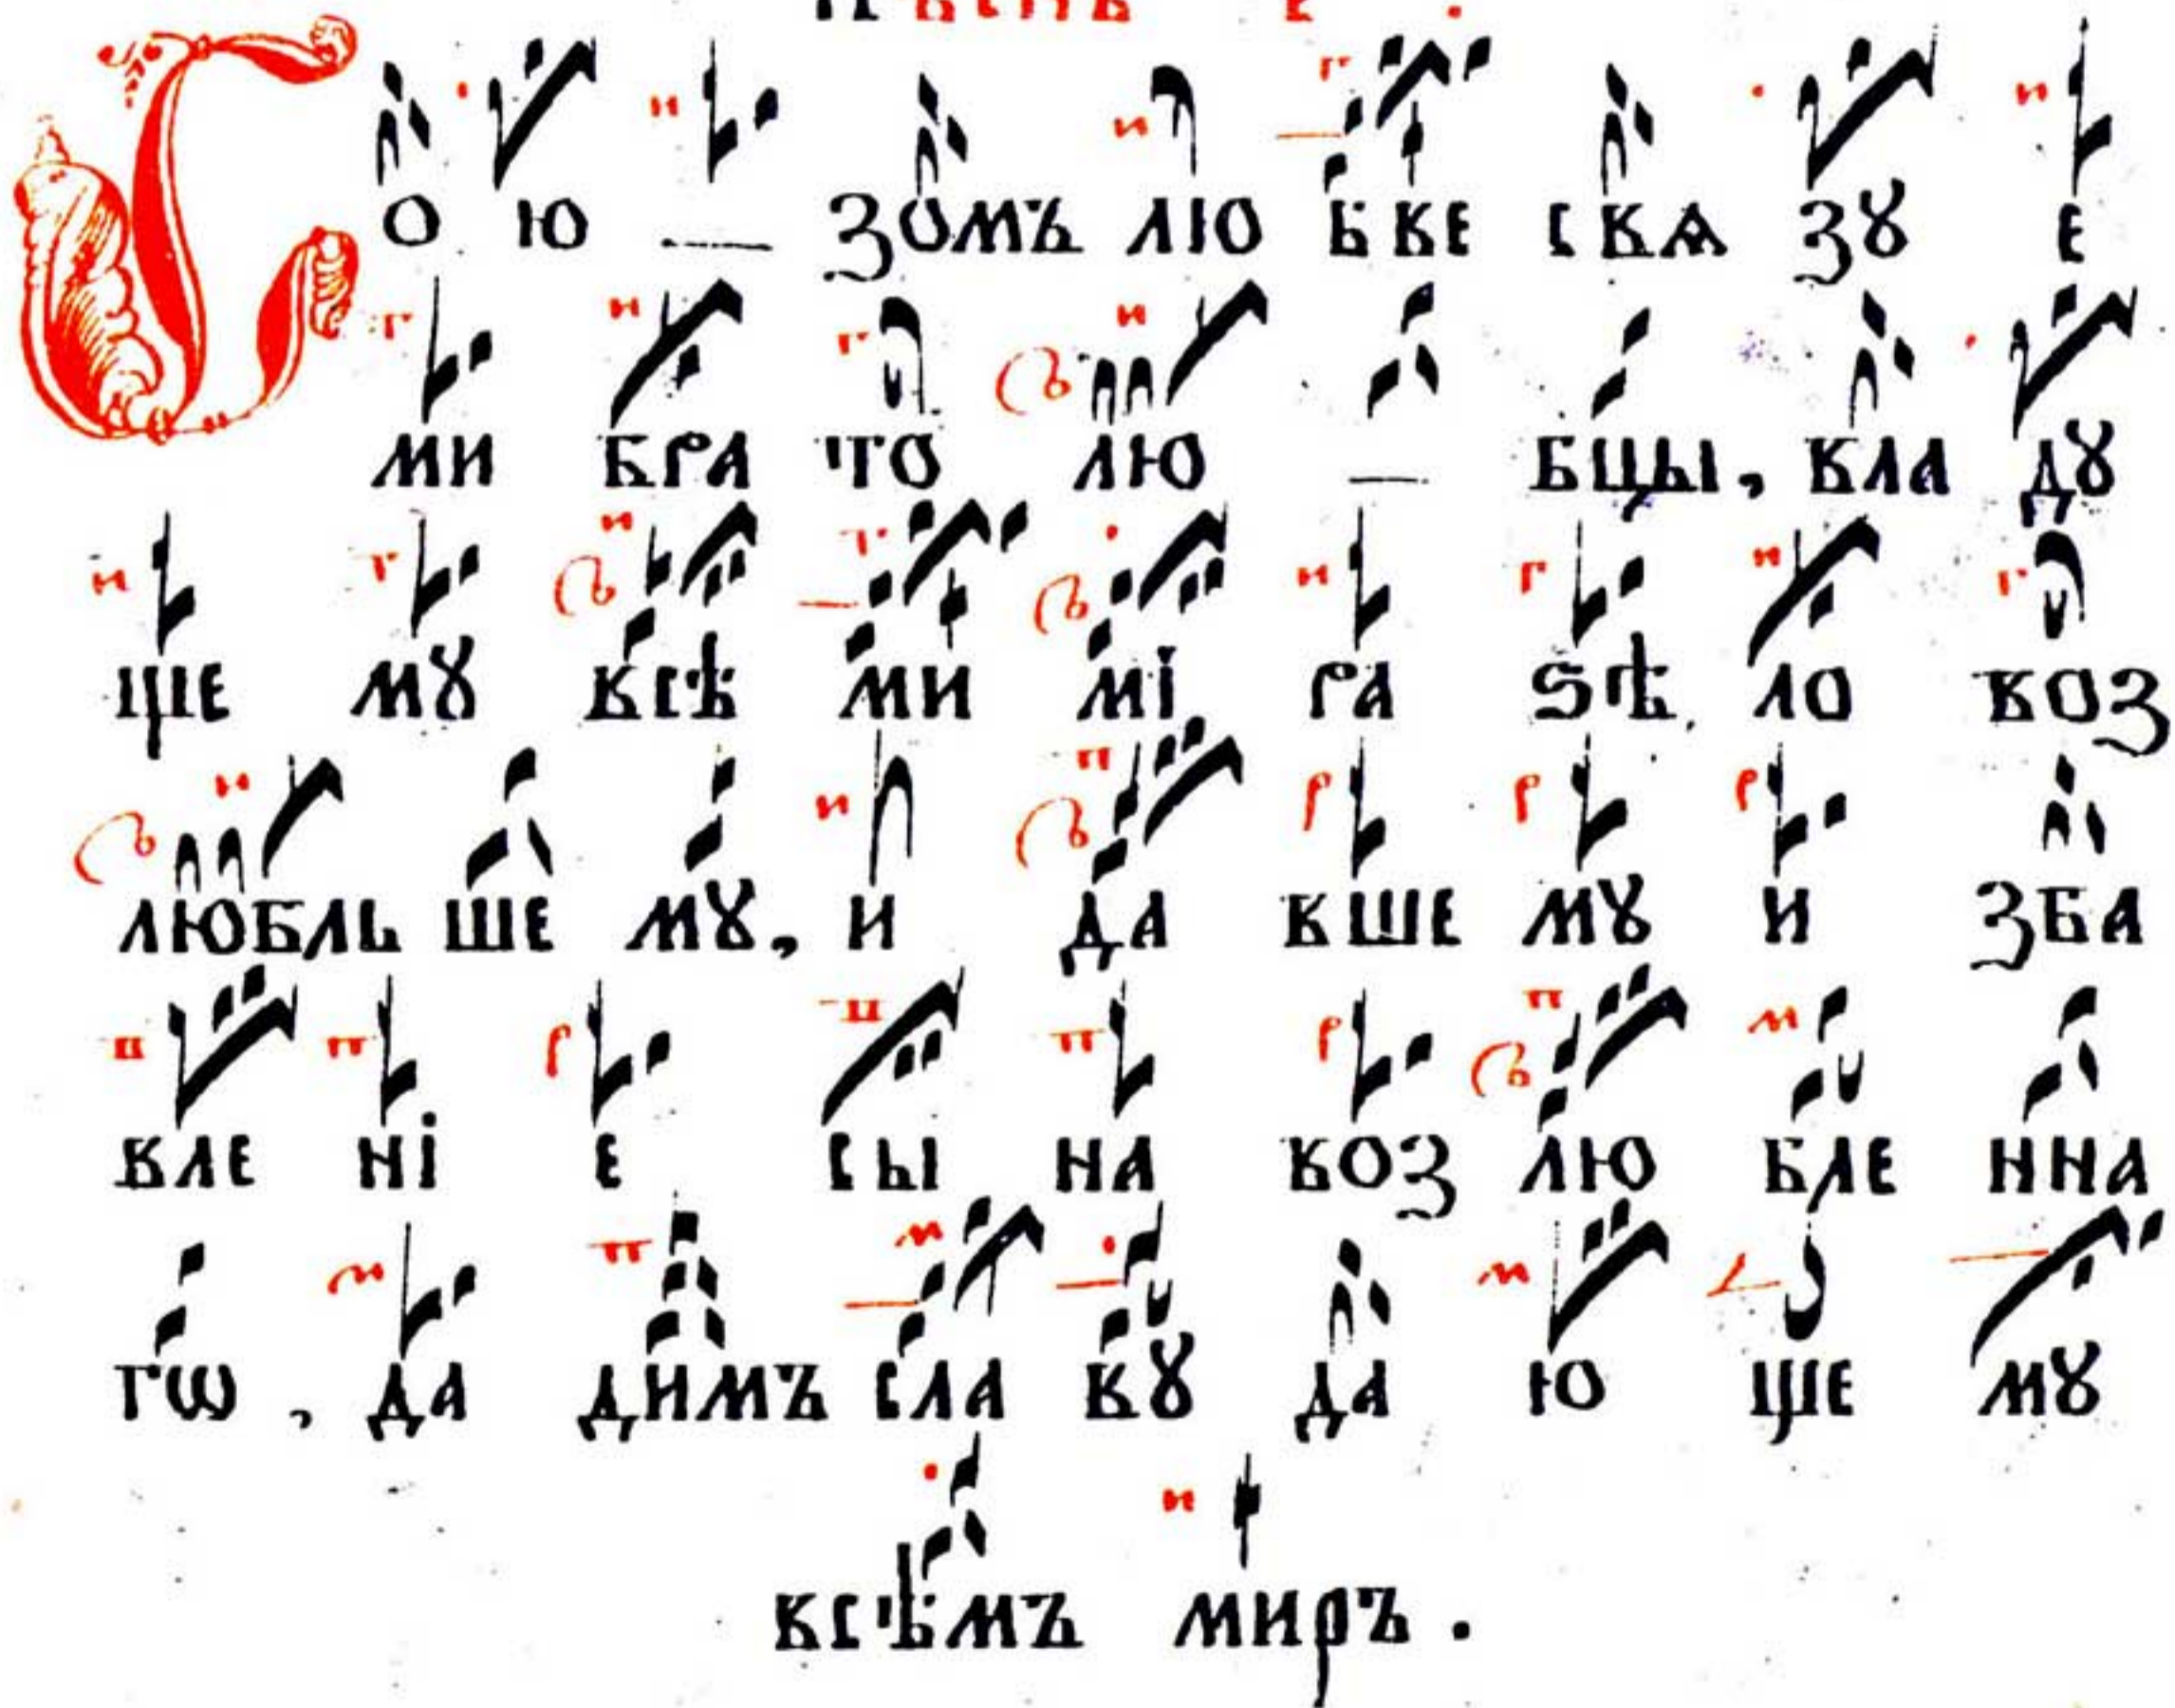 С О Ю — ЗОМЪ ЛЮ БВЕ СВѦ ЗꙊ Е
МИ БРА ТО ЛЮ — БЦЫ, ВЛА ДꙊ
ЩЕ МꙊ ВСѢ МИ МІ РА ЅѢ ЛО ВОЗ
ЛЮБЛЬ ШЕ МꙊ, И ДА ВШЕ МꙊ И ЗБА
ВЛЕ НІ Е СЫ НА ВОЗ ЛЮ БЛЕ ННА
ГѠ, ДА ДИМЪ СЛА ВꙊ ДА Ю ЩЕ МꙊ
ВСѢМЪ МИРЪ.